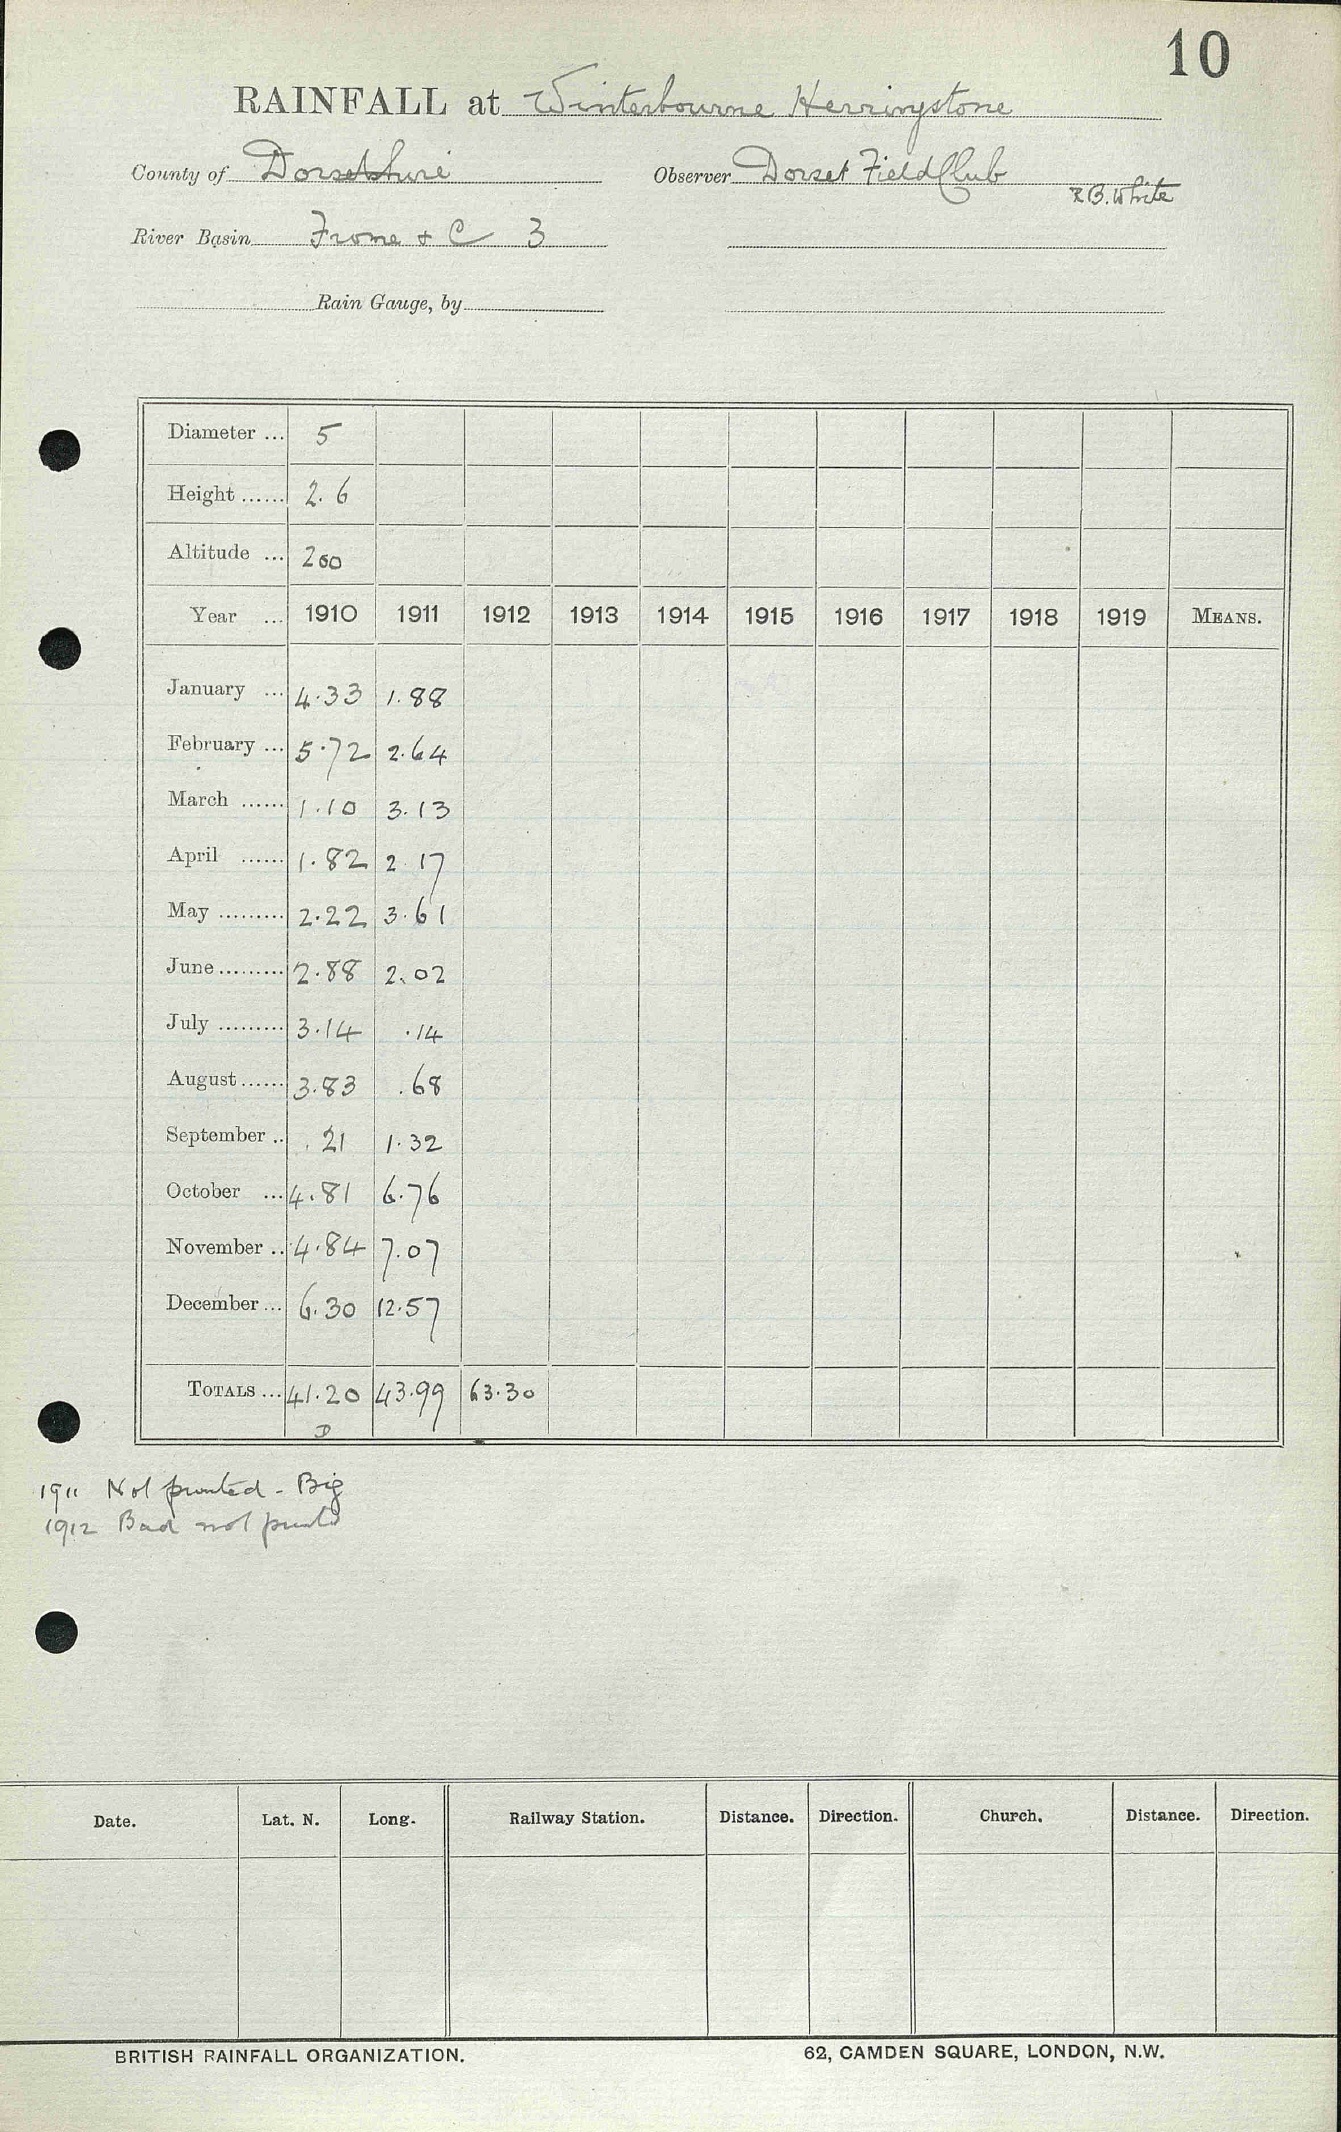 10
RAINFALL at Winterbourne Herringstone
County of Dorsetshire Observer Dorset Field Club
R.B. White
River Basin Frome & C 3
Rain Gauge, by
Diameter ... 5
Height ...... 2.6
Altitude ... 200
Year ... 1910 1911 1912 1913 1914 1915 1916 1917 1918 1919 MEANS.
January ... 4.33 1.88
February ... 5.72 2.64
March ...... 1.10 3.13
April ...... 1.82 2 17
May ......... 2.22 3.61
June ......... 2.88 2.02
July ......... 3.14 .14
August ...... 3.83 .68
September .. .21 1.32
October ... 4.81 6.76
November .. 4.84 7.07
December ... 6.30 12.57
TOTALS ... 41.20 43.99 63.30
D
1911 Not printed - Big
1912 Bad not
Date. Lat. N. Long. Railway Station. Distance. Direction. Church. Distance. Direction.
BRITISH RAINFALL ORGANIZATION. 62, CAMDEN SQUARE, LONDON, N.W.